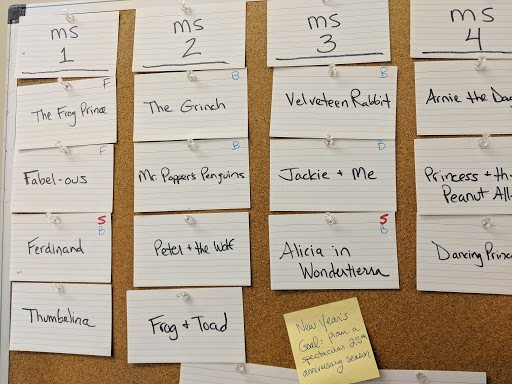 MS
1
F
The Frog Prince
F
Fabel-ous
S
B
Ferdinand
Thumbelina
MS
2
B
The Grinch
B
Mr. Popper's Penguins
Peter + the Wolf
Frog + Toad
MS
3
B
Velveteen Rabbit
B
Jackie + Me
S
B
Alicia in
Wondertierra
New Year's
Goal: plan a
spectacular
season
MS
4
Arnie the
Princess + th
Peanut All
Dancing Princ